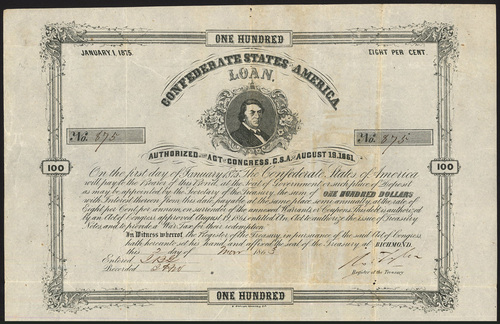 ONE HUNDRED
JANUARY 1, 1875. EIGHT PER CENT.
CONFEDERATE STATES OF AMERICA
LOAN.
No. 875 No. 875
AUTHORIZED BY ACT OF CONGRESS, C.S.A. OF AUGUST 19, 1861.
100 100
On the first day of January 1875 The Confederate States of America
will pay to the Bearer of this Bond, at the seat of Government, or such place of Deposit
as may be appointed by the Secretary of the Treasury, the sum of ONE HUNDRED DOLLARS
with Interest thereon from this date, payable at the same place, semi-annually, at the rate of
Eight per Cent. per annum, on surrender of the annexed Warrants or Coupons. This debt is authorized
by an Act of Congress approved August 19, 1861, entitled An Act to authorize the issue of Treasury
Notes, and to provide a War Tax for their redemption.
In Witness whereof, the Register of the Treasury, in pursuance of the said Act of Congress
hath hereunto set his hand, and affixed the seal of the Treasury, at RICHMOND,
this 2 day of
Entered
Recorded
Register of the Treasury
ONE HUNDRED